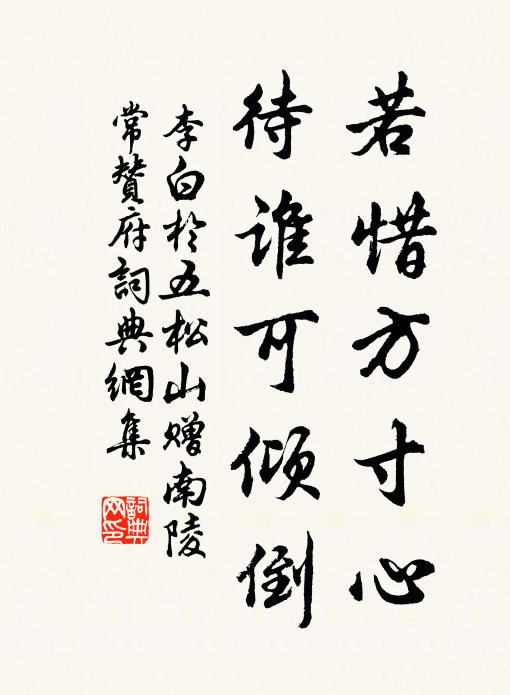 若惜方寸心
待谁可倾倒
李白於五松山赠南陵
常贊府詞典網集
詞典网印